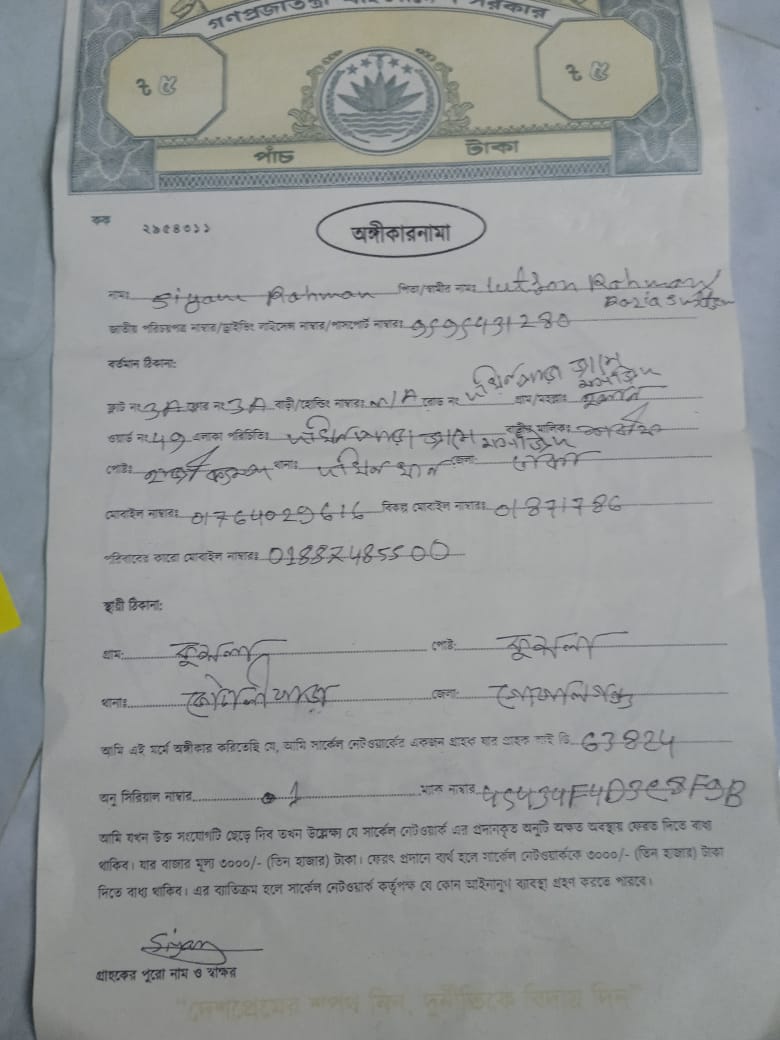 গণপ্রজাতন্ত্রী বাংলাদেশ সরকার
৳ ৫ ৳ ৫
পাঁচ টাকা
কক ২৯৫৪০১১
অঙ্গীকারনামা
নামঃ Siyam Rahman পিতা/স্বামীর নামঃ Lutfor Rahman
Razia Sultan
জাতীয় পরিচয়পত্র নাম্বার/ড্রাইভিং লাইসেন্স নাম্বার/পাসপোর্ট নাম্বারঃ 9595431280
বর্তমান ঠিকানা:
ফ্ল্যাট নং 3A ফ্লোর নং 3A বাড়ী/হোল্ডিং নাম্বারঃ N/A রোড নং গ্রাম/মহল্লাঃ
ওয়ার্ড নং 49 এলাকা পরিচিতিঃ বাড়ীর মালিকঃ
পোষ্টঃ থানাঃ দক্ষিনখান জেলা: ঢাকা
মোবাইল নাম্বারঃ 01764029616 বিকল্প মোবাইল নাম্বারঃ 01871786
পরিবারের কারো মোবাইল নাম্বারঃ 01887485500
স্থায়ী ঠিকানা:
গ্রাম: কুশলা পোষ্ট: কুশলা
থানাঃ কোটালীপাড়া জেলা: গোপালগঞ্জ
আমি এই মর্মে অঙ্গীকার করিতেছি যে, আমি সার্কেল নেটওয়ার্কের একজন গ্রাহক যার গ্রাহক আই ডি. 63824
অনু সিরিয়াল নাম্বার 1 ম্যাক নাম্বার 45434F4D3E8F9B
আমি যখন উক্ত সংযোগটি ছেড়ে দিব তখন উল্লেক্ষ্য যে সার্কেল নেটওয়ার্ক এর প্রদানকৃত অনুটি অক্ষত অবস্থায় ফেরত দিতে বাধ্য
থাকিব। যার বাজার মূল্য ৩০০০/- (তিন হাজার) টাকা। ফেরৎ প্রদানে ব্যর্থ হলে সার্কেল নেটওয়ার্ককে ৩০০০/- (তিন হাজার) টাকা
দিতে বাধ্য থাকিব। এর ব্যতিক্রম হলে সার্কেল নেটওয়ার্ক কর্তৃপক্ষ যে কোন আইনানুগ ব্যবস্থা গ্রহণ করতে পারবে।
Siyam
গ্রাহকের পুরো নাম ও স্বাক্ষর
"দেশপ্রেমের শপথ নিন, দুর্নীতিকে বিদায় দিন"